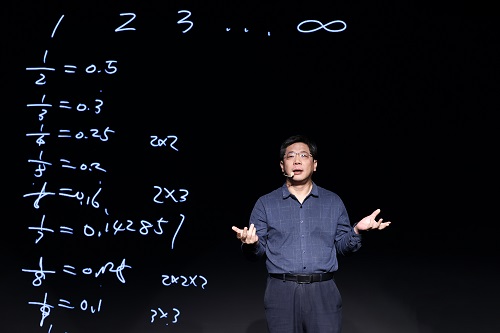 1 2 3 ... ∞
1/2 = 0.5
1/3 = 0.3
1/4 = 0.25 2x2
1/5 = 0.2
1/6 = 0.16 2x3
1/7 = 0.142857
1/8 = 2x2x2
1/9 = 0.1 3x3